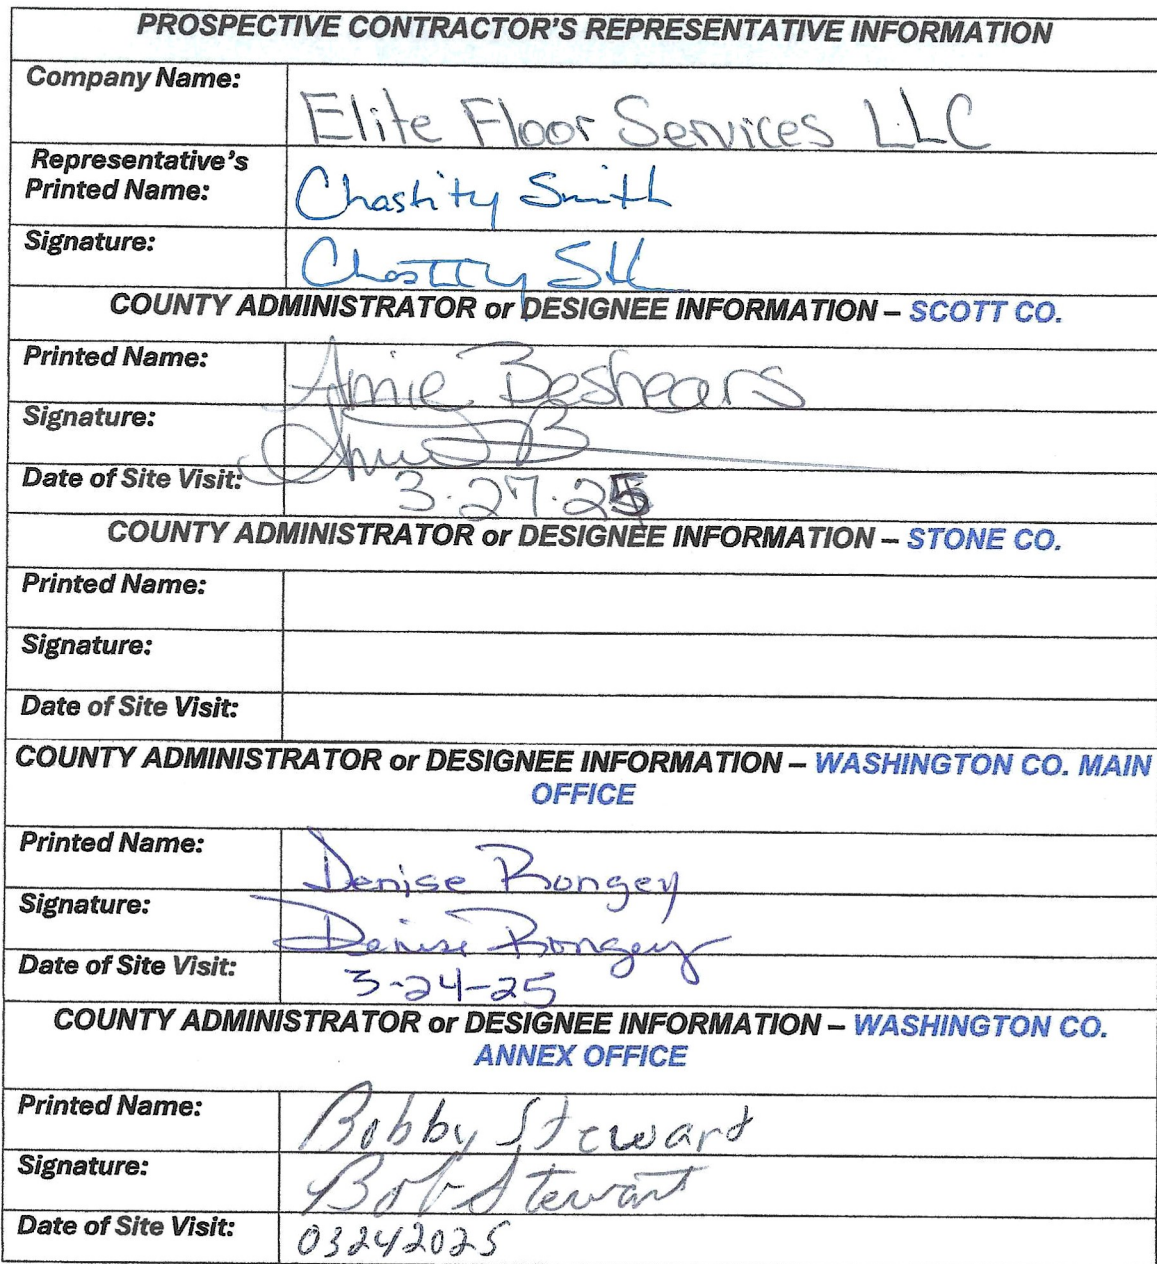 PROSPECTIVE CONTRACTOR'S REPRESENTATIVE INFORMATION
Company Name: Elite Floor Services LLC
Representative's
Printed Name: Chastity Smith
Signature: Chastity Sth
COUNTY ADMINISTRATOR or DESIGNEE INFORMATION – SCOTT CO.
Printed Name: Amie Beshears
Signature:
Date of Site Visit: 3-27-25
COUNTY ADMINISTRATOR or DESIGNEE INFORMATION – STONE CO.
Printed Name:
Signature:
Date of Site Visit:
COUNTY ADMINISTRATOR or DESIGNEE INFORMATION – WASHINGTON CO. MAIN
OFFICE
Printed Name: Denise Bongey
Signature: Denise Bongey
Date of Site Visit: 3-24-25
COUNTY ADMINISTRATOR or DESIGNEE INFORMATION – WASHINGTON CO.
ANNEX OFFICE
Printed Name: Bobby Stewart
Signature: Bob Stewart
Date of Site Visit: 03242025